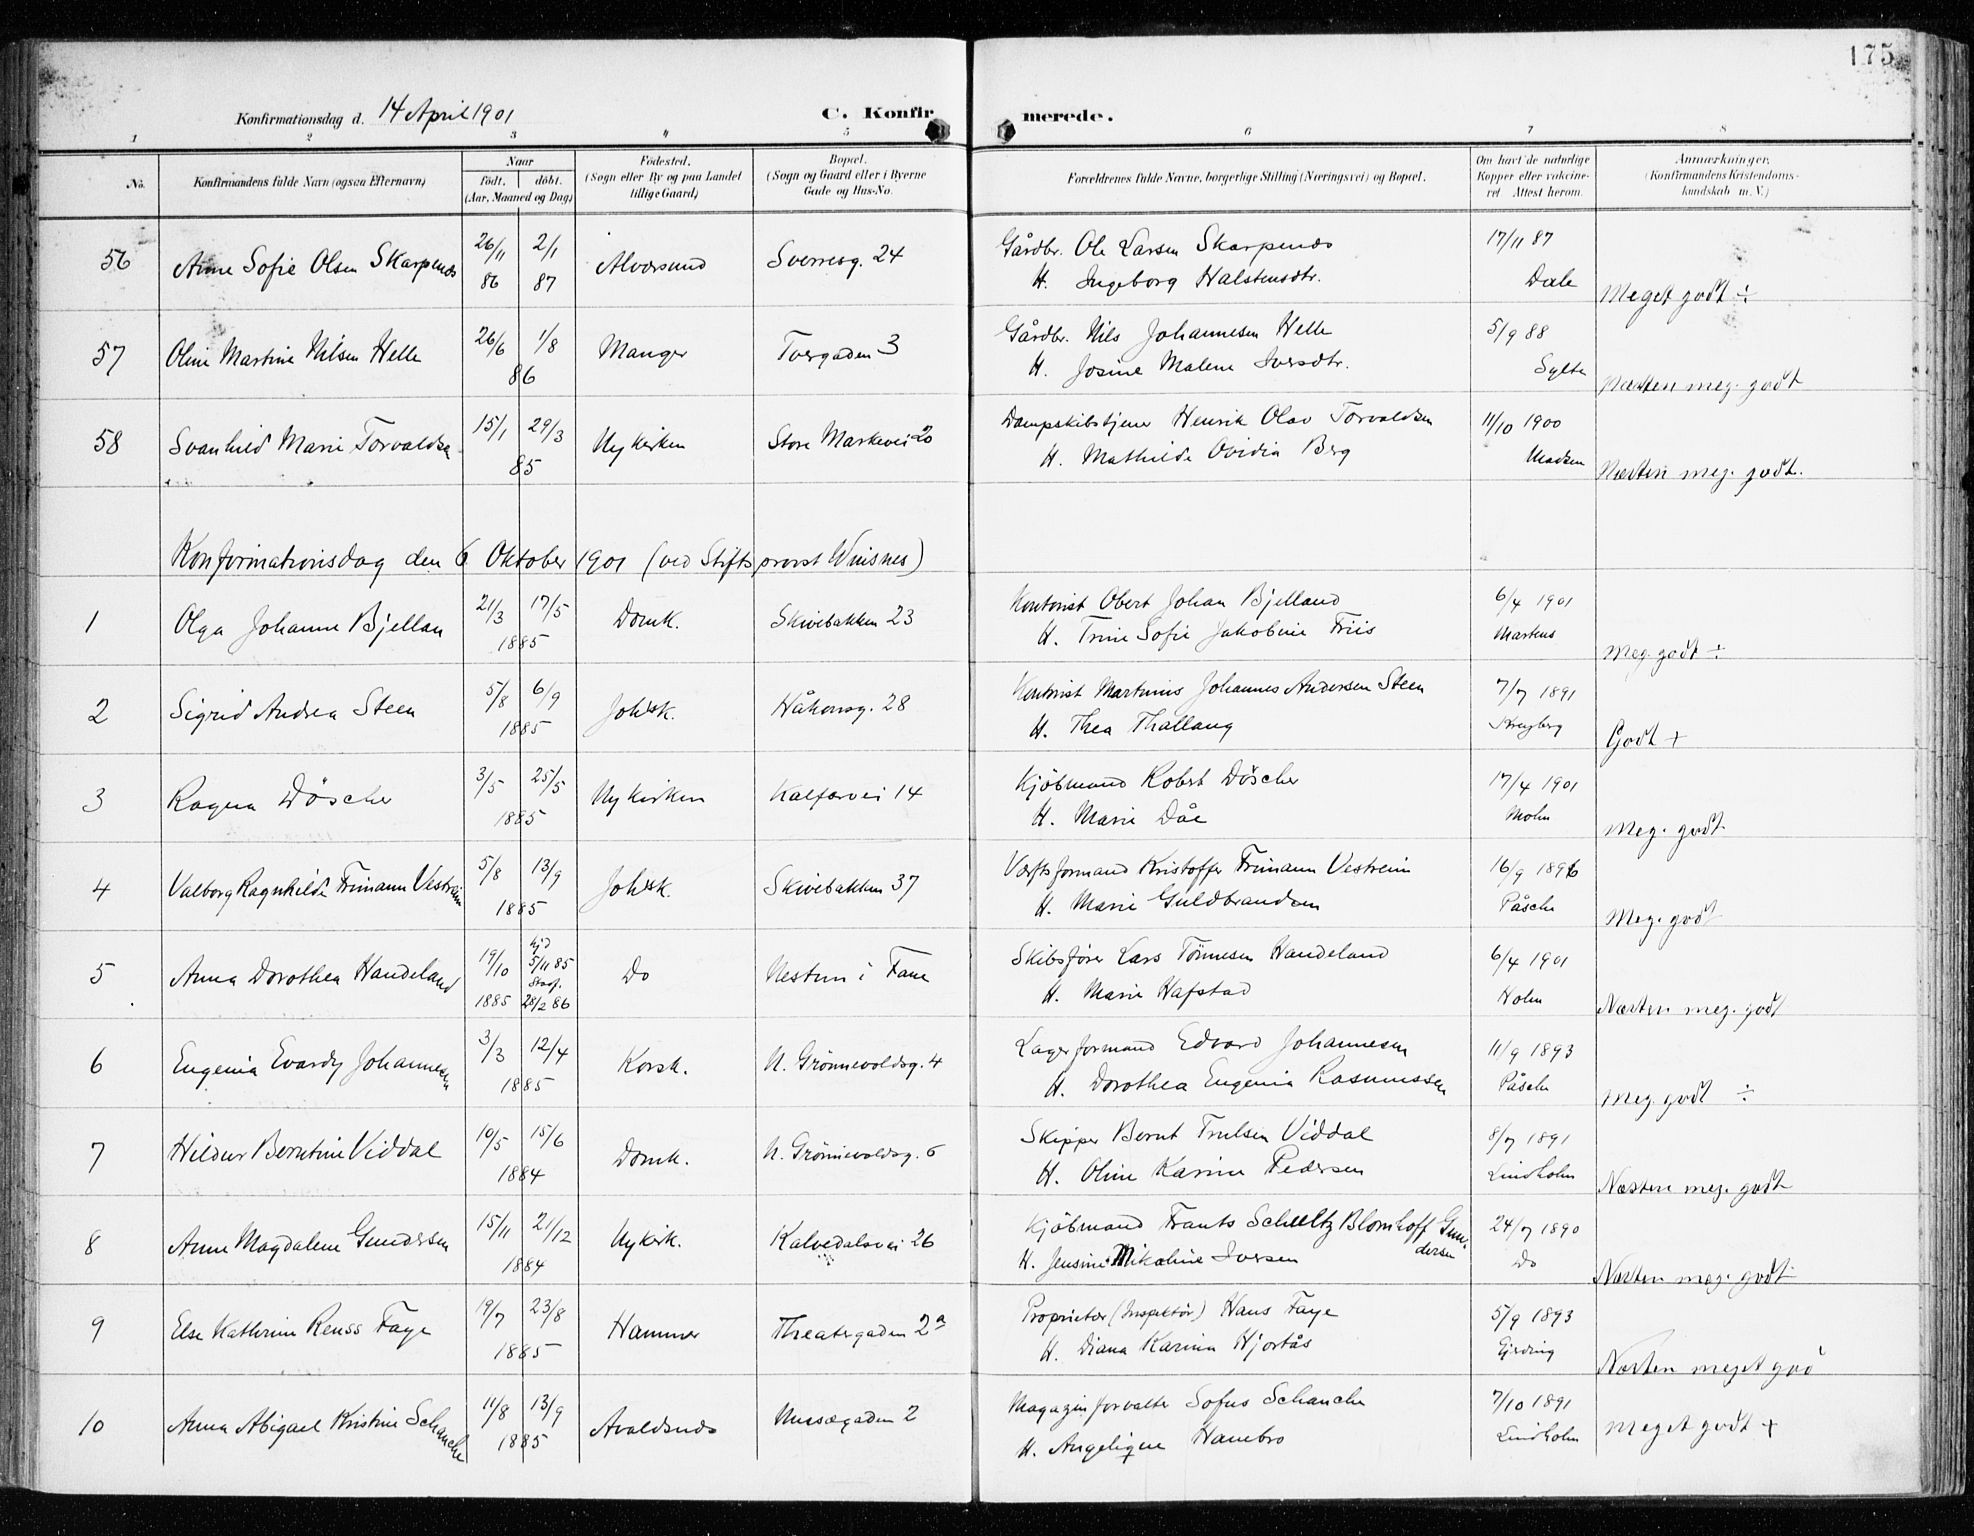 175
Konfirmationsdag d. 14 April 1901
C. Konfir
merede.
1 2 3 4 5 6 7 8
No.
Konfirmandens fulde Navn (ogsaa Efternavn)
Naar
födt. döbt.
(Aar, Maaned og Dag)
Födested.
(Sogn eller By og paa Landet
tillige Gaard)
Bopæl.
(Sogn og Gaard eller i Byerne
Gade og Hus-No.
Forældrenes fulde Navne, borgerlige Stilling (Næringsvei) og Bopæl.
Om havt de naturlige
Kopper eller vakcine-
ret Attest herom.
Anmærkninger.
(Konfirmandens Kristendoms-
kundskab m. V.)
56 Anne Sofie Olsen Skarpenes 26/11 86 2/1 87 Alversund Sverresg. 24 Gårdbr. Ole Larsen Skarpenes 17/11 87
H. Ingeborg Halstensdtr. Dale Meget godt ÷
57 Oline Martine Nilsen Helle 26/6 1/8 86 Manger Tvergaden 3 Gårdbr. Nils Johannesen Helle 5/9 88
H. Josine Malene Iversdtr. Sylte Næsten meg. godt
58 Svanhild Marie Torvaldsen 15/1 29/3 85 Nykirken Store Markevei 20 Dampskibstjener Henrik Olav Torvaldsen 11/10 1900
H. Mathilde Ovidia Berg Madsen Næsten meg. godt.
Konfirmationsdag den 6 Oktober 1901 (ved Stiftsprovst Wiisnes)
1 Olga Johanne Bjellan 21/3 17/5 1885 Domk. Skivebakken 23 Kontorist Obert Johan Bjelland 6/4 1901
H. Trine Sofie Jakobine Friis Martens Meg. godt ÷
2 Sigrid Andrea Steen 5/8 6/9 1885 Johsk. Håkonsg. 28 Kontorist Martinius Johannes Andersen Steen 7/7 1891
H. Thea Thallaug Godt +
3 Ragna Döscher 3/5 25/5 1885 Nykirken Kalfarvei 14 Kjöbmand Robert Döscher 17/4 1901
H. Marie Dåe Mohn Meg. godt
4 Valborg Ragnhilde Frimann Vestreim 5/8 13/9 1885 Johsk. Skivebakken 37 Værftsformand Kristoffer Frimann Vestreim 16/9 1896
H. Marie Guldbrandsen Påsche Meg. godt
5 Anna Dorothea Handeland 19/10 1885 hjd 5/11 85 Stadf. 28/2 86 Do Nestun i Fane Skibsfører Lars Tönnesen Handeland 6/4 1901
H. Marie Hafstad Holm Næsten meg. godt
6 Eugenia Evardy Johannesen 3/3 12/4 1885 Korsk. N. Grönnevoldsg. 4 Lagerformand Edvard Johannesen 11/9 1893
H. Dorothea Eugenia Rasmussen Påsche Meg. godt ÷
7 Hildur Berntine Viddal 10/5 15/6 1884 Domk. N. Grönnevoldsg. 6 Skipper Bernt Trulsen Viddal 8/7 1891
H. Oline Karine Pedersen Lindholm Næsten meg. godt
8 Anne Magdalene Gundersen 15/11 21/12 1884 Nykirk. Kalvedalsvei 26 Kjöbmand Frants Scheeltz Blomhoff Gun-
dersen 24/7 1890
H. Jensine Mikaline Iversen Do Næsten meg. godt
9 Else Kathrine Renss Faye 19/7 23/8 1885 Hammer Theatergaden 2a Proprietær (Inspektør) Hans Faye 5/9 1893
H. Diana Karina Hjortås Gjerding Næsten meget god
10 Anna Abigael Kristine Schanche 11/8 13/9 1885 Avaldsnes Nussegaden 2 Magazinforvalter Sofus Schanche 7/10 1891
H. Angelique Hanebro Lindholm Meget godt +